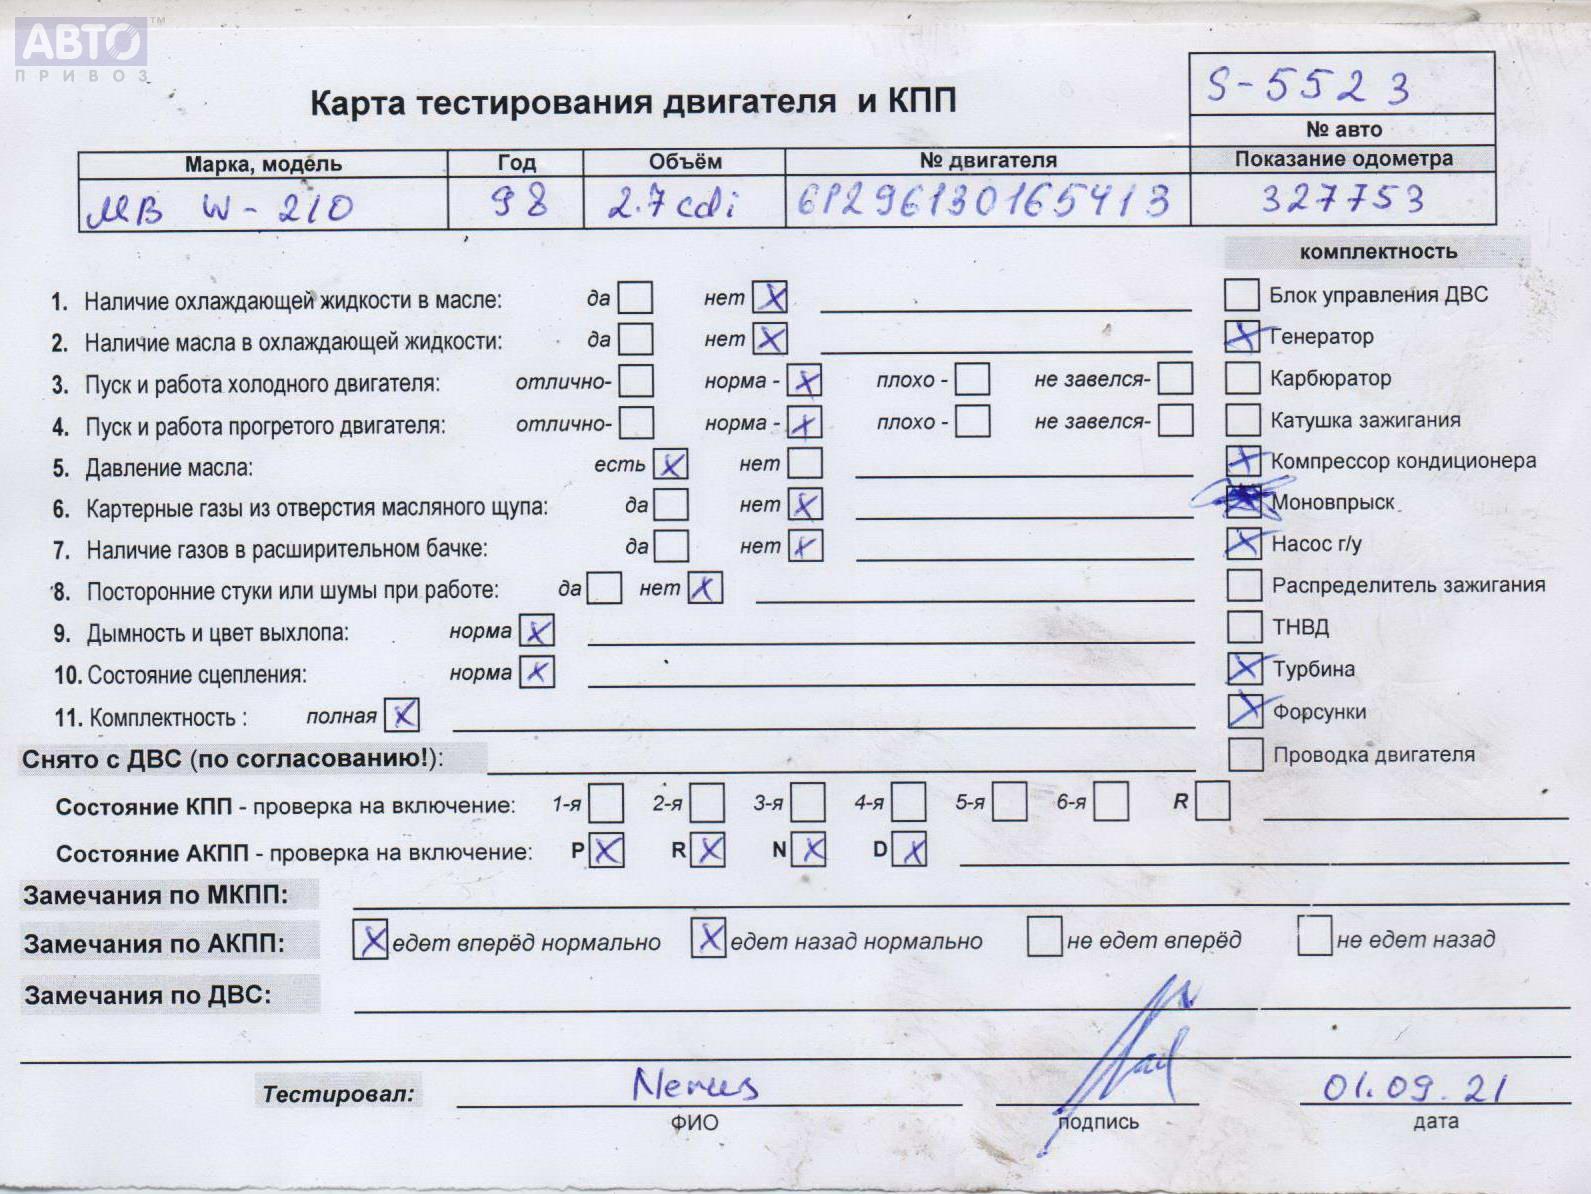 АВТО ™
ПРИВОЗ
S-5523
Карта тестирования двигателя и КПП
№ авто
Марка, модель Год Объём № двигателя Показание одометра
МВ W-210 98 2.7cdi 61296130165413 327753
комплектность
1. Наличие охлаждающей жидкости в масле: да нет X Блок управления ДВС
2. Наличие масла в охлаждающей жидкости: да нет X X Генератор
3. Пуск и работа холодного двигателя: отлично- норма - X плохо - не завелся- Карбюратор
4. Пуск и работа прогретого двигателя: отлично- норма - X плохо - не завелся- Катушка зажигания
5. Давление масла: есть X нет X Компрессор кондиционера
6. Картерные газы из отверстия масляного щупа: да нет X Моновпрыск
7. Наличие газов в расширительном бачке: да нет X X Насос г/у
8. Посторонние стуки или шумы при работе: да нет X Распределитель зажигания
9. Дымность и цвет выхлопа: норма X ТНВД
10. Состояние сцепления: норма X X Турбина
11. Комплектность : полная X X Форсунки
Снято с ДВС (по согласованию!): Проводка двигателя
Состояние КПП - проверка на включение: 1-я 2-я 3-я 4-я 5-я 6-я R
Состояние АКПП - проверка на включение: P X R X N X D X
Замечания по МКПП:
Замечания по АКПП: X едет вперёд нормально X едет назад нормально не едет вперёд не едет назад
Замечания по ДВС:
Тестировал: Nerus 01.09.21
ФИО подпись дата